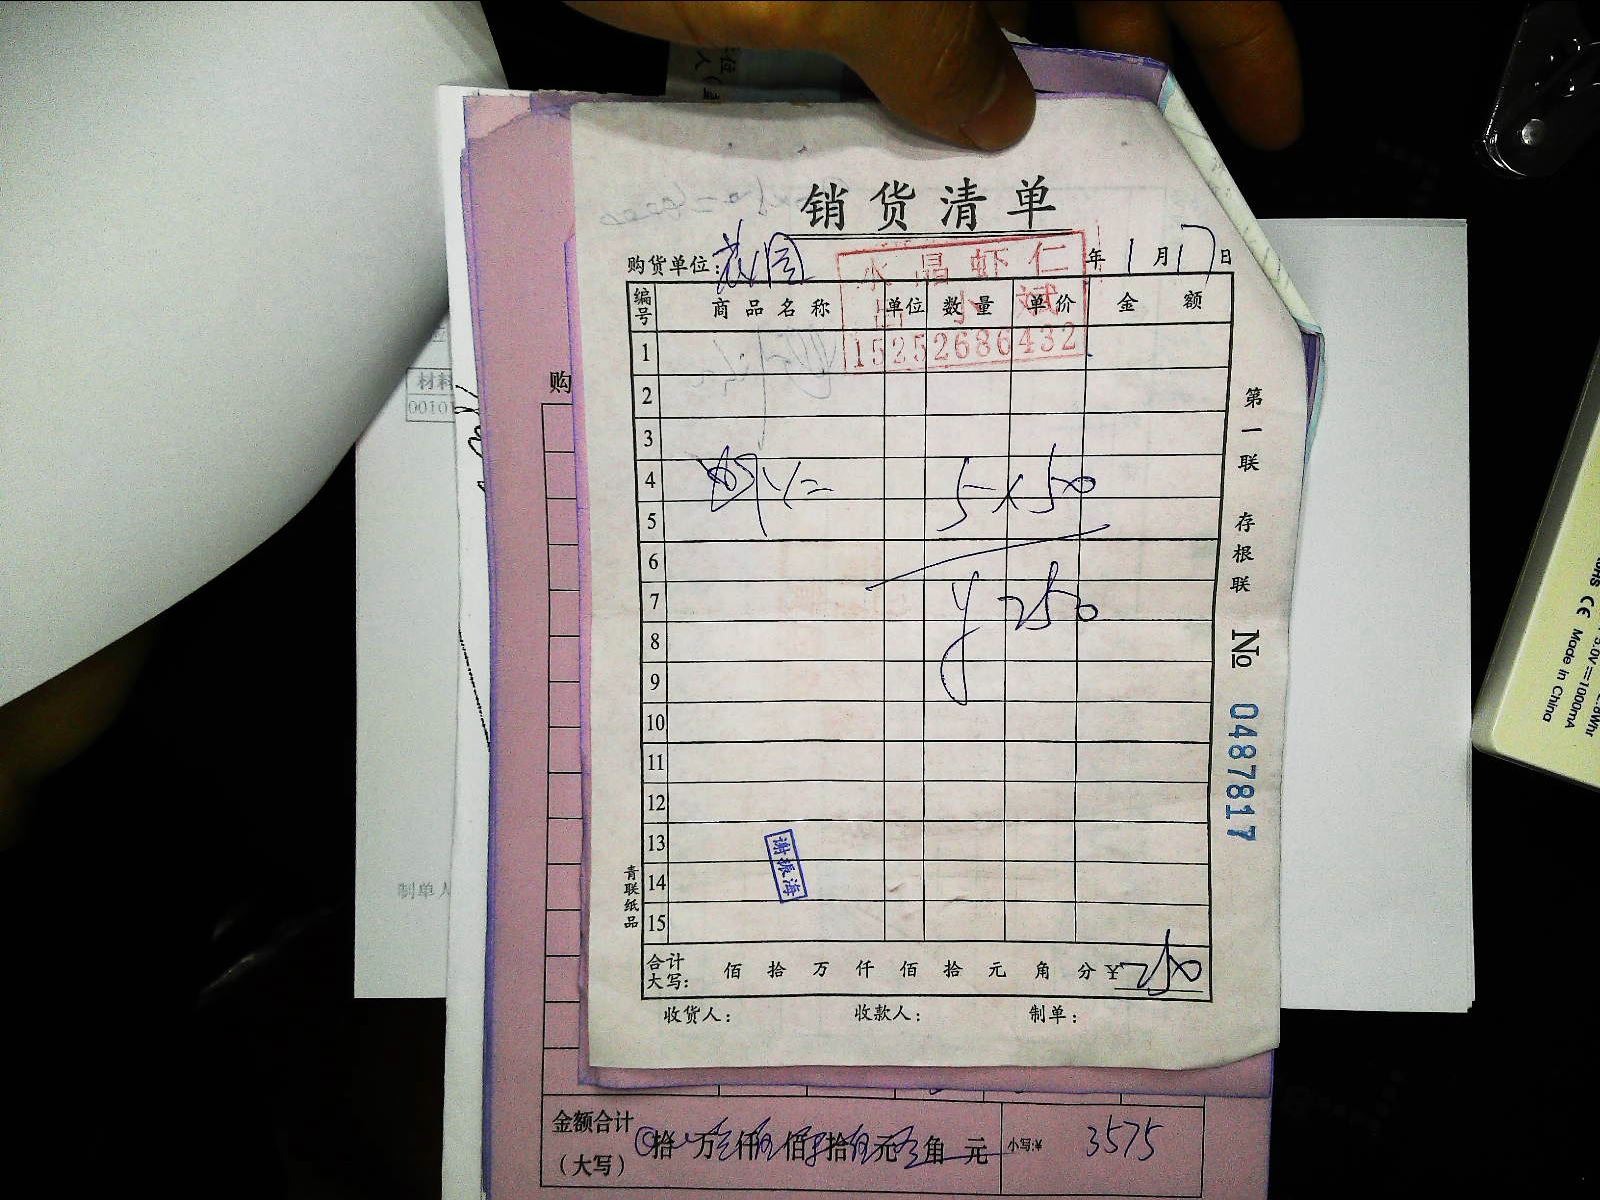 销货清单
购货单位：花园 年 1 月 17 日
水晶虾仁
小斌
15252686432
编号 商品名称 单位 数量 单价 金额
1
2
3
4 虾仁 5×50
5
6
7 ¥250
8
9
10
11
12
13
14
15
谢振海
合计大写： 佰 拾 万 仟 佰 拾 元 角 分 ¥250
收货人： 收款人： 制单：
青联纸品
第一联 存根联
№ 0487817
购
材料
00101
制单人
金额合计（大写） 拾 万 仟 佰 拾 元 角 元 小写:¥ 3575
CE Made in China